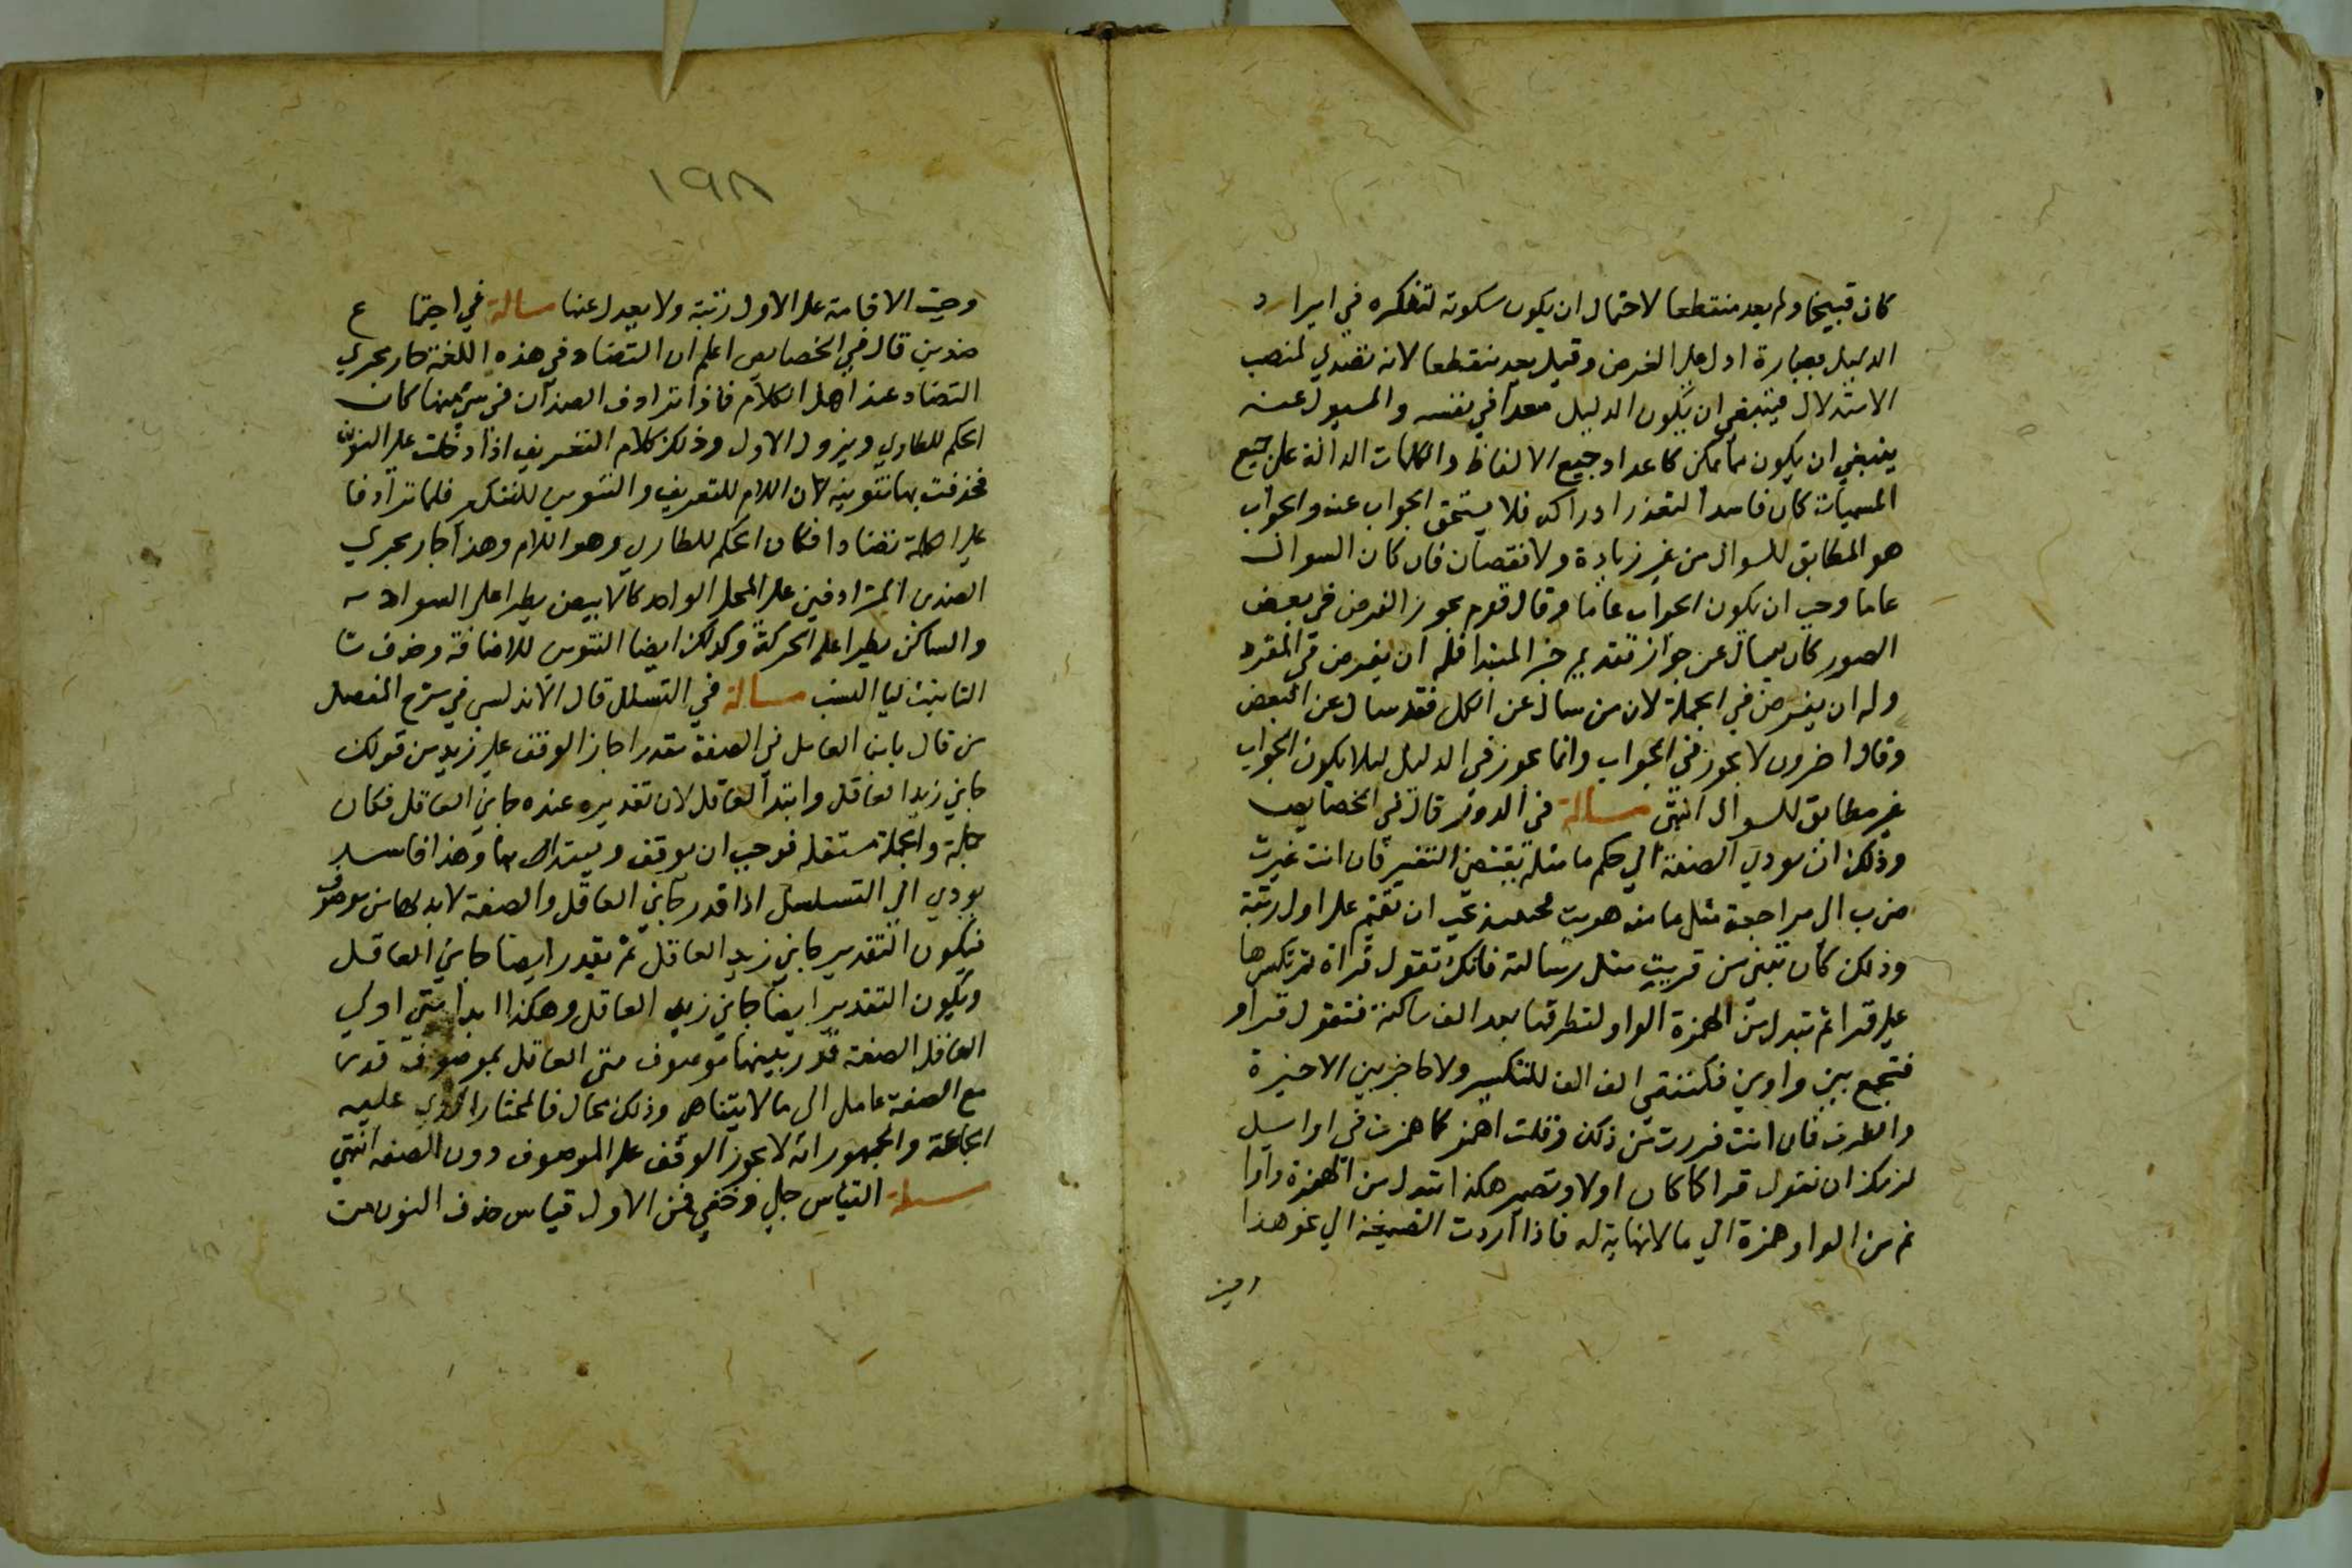 كان قبيحا ولم يعد منقطعا لاحتمال ان يكون سكوته لتفكره في ايراد
الدليل بعبارة ادل على الغرض وقيل يعد منقطعا لانه تصدي لمنصب
الاستدلال فينبغي ان يكون الدليل معدا في نفسه والمسيول عنه
ينبغي ان يكون مما يمكن كاعداد جميع الالفاظ والكلمات الدالة على جميع
المسميات كان فاسدا لتعذر ادراكه فلا يستحق الجواب عنه والجواب
هو المطابق للسوال من غير زيادة ولا نقصان فان كان السوال
عاما وجب ان يكون الجواب عاما وقال قوم يجوز الفرض في بعض
الصور كان يسال عن جواز تقديم خبر المبتدا فله ان يفرض في المفرد
وله ان يفرض في الجملة لان من سال عن الكل فقد سال عن البعض
وقال اخرون لا يجوز في الجواب وانما يجوز في الدليل ليلا يكون الجواب
غير مطابق للسوال انتهى مسالة في الدور قال في الخصايص
وذلك ان تودي الصنعة الي حكم ما مثله يقتضي التغير فان انت غيرت
صرت الى مراجعة مثل ما منه هربت فحينيذ يجب ان تقيم على اول رتبة
وذلك كان تبنى من قريت مثل رسالة فانك تقول قراة ثم تكسرها
على قرا ثم تبدل من الهمزة الواو لتطرفها بعد الف ساكنة فتقول قراو
فتجمع بين واوين مكتنفتي الف التكسير ولا حاجز بين الاخيرة
والطرف فان انت فررت من ذلك وقلت اهمز كما همزت في اوايل
لزمك ان تقول قرا كما كان اولا وتصير هكذا تبدل من الهمزة واوا
ثم من الواو همزة الي ما لا نهاية له فاذا ادت الصنعة الي نحو هذا
وجبت الاقامة على الاول رتبة ولا يعدل عنها مسالة في اجتماع
ضدين قال في الخصايص اعلم ان التضاد في هذه اللغة جار مجري
التضاد عند اهل الكلام فاذا ترادف الضدان في شي منها كان
الحكم للطاري ويزول الاول وذلك كلام التعريف اذا دخلت على المنون
فحذفت لها تنوينه لان اللام للتعريف والتنوين للتنكير فلما ترادفا
على الكلمة تضادا فكان الحكم للطاري وهو اللام وهذا جار مجري
الضدين المترادفين على المحل الواحد كالابيض يطرا على السواد
والساكن يطرا على الحركة وكذلك ايضا التنوين للاضافة وحذف تا
التانيث ليا النسب مسالة في التسلسل قال الاندلسي في شرح المفصل
من قال بان العامل في الصفة مقدر اجاز الوقف على زيد من قولك
جاني زيد العاقل وابتدا العاقل لان تقديره عنده جاني العاقل فكان
جملة والجملة مستقلة فوجب ان يوقف ويبتدا بها وهذا فاسد
يودي الي التسلسل اذا قدر جاني العاقل والصفة لا بد لها من موصوف
فيكون التقدير جاني زيد العاقل ثم يقدر ايضا جاني العاقل
ويكون التقدير ايضا جاني زيد العاقل وهكذا ابدا متى اولي
العاقل الصفة قدر بينهما موصوف متى العاقل بموصوف قدر
مع الصفة عامل الى ما لا يتناهى وذلك محال فالمختار الذي عليه
الجماعة والجمهور انه لا يجوز الوقف على الموصوف دون الصفة انتهى
مسالة القياس جلي وخفي فمن الاول قياس حذف النون من
١٩٨